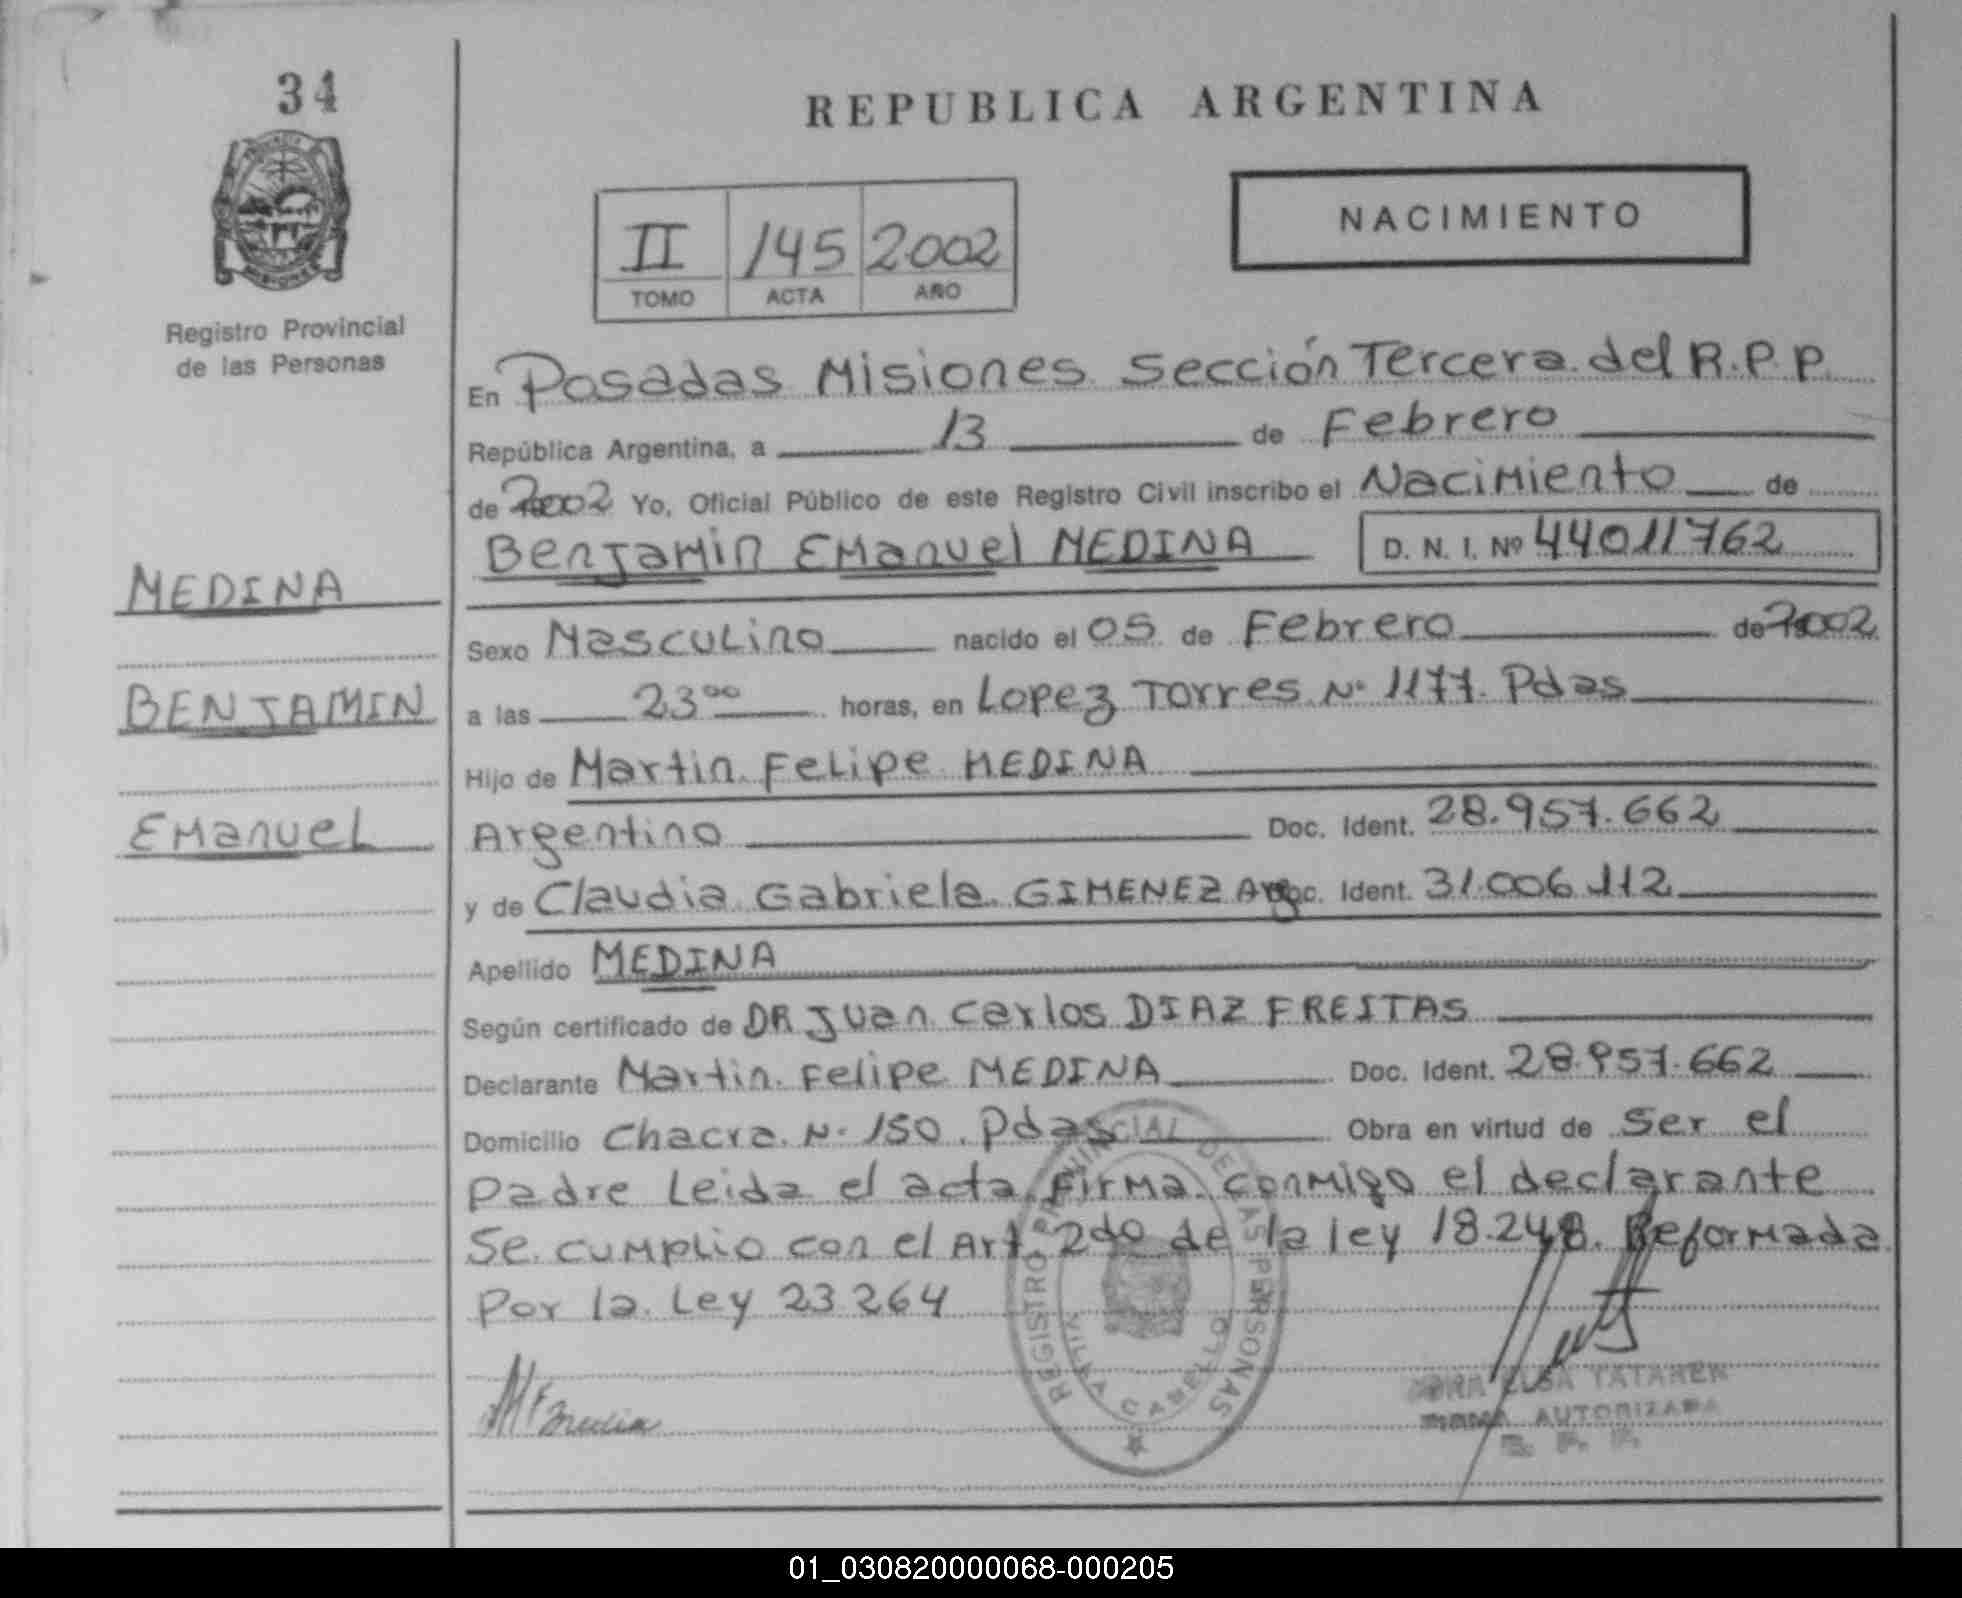 34
REPUBLICA ARGENTINA
NACIMIENTO
II 145 2002
TOMO ACTA AÑO
Registro Provincial
de las Personas
En Posadas Misiones Sección Tercera del R.P.P.
República Argentina, a 13 de Febrero
de 2002 Yo, Oficial Público de este Registro Civil inscribo el Nacimiento de
Benjamin Emanuel MEDINA D. N. I. Nº 44011762
MEDINA
Sexo Masculino nacido el 05 de Febrero de 2002
BENJAMIN
a las 23⁰⁰ horas, en Lopez Torres Nº 1177. Pdas
Hijo de Martin Felipe MEDINA
Emanuel
Argentino Doc. Ident. 28.957.662
y de Claudia Gabriela GIMENEZ Arg Doc. Ident. 31.006.112
Apellido MEDINA
Según certificado de DR Juan Carlos DIAZ FREITAS
Declarante Martin Felipe MEDINA Doc. Ident. 28.957.662
Domicilio Chacra Nº 150. Pdas Obra en virtud de Ser el
Padre Leida el acta Firma conmigo el declarante
Se cumplio con el Art. 2do de la ley 18.248. Reformada
Por la Ley 23264
REGISTRO PROVINCIAL DE LAS PERSONAS
CABELLO
ELSA TATAREN
FIRMA AUTORIZADA
01_030820000068-000205